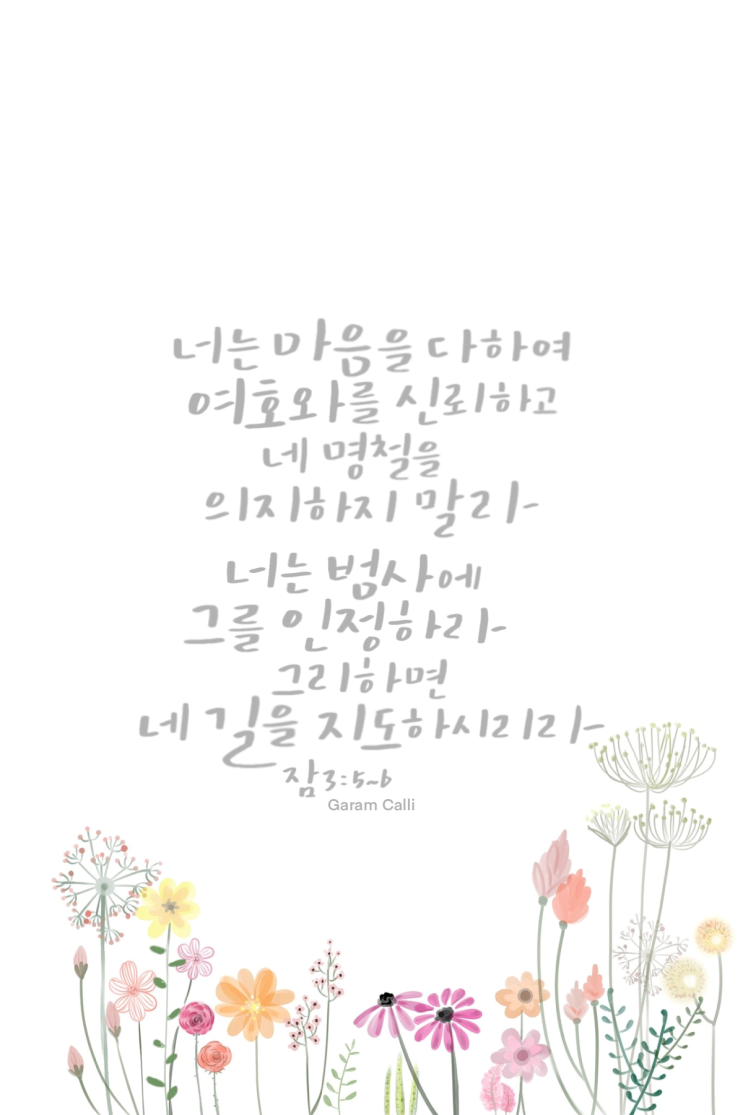 너는 마음을 다하여
여호와를 신뢰하고
네 명철을
의지하지 말라
너는 범사에
그를 인정하라
그리하면
네 길을 지도하시리라
잠 3:5~6
Garam Calli